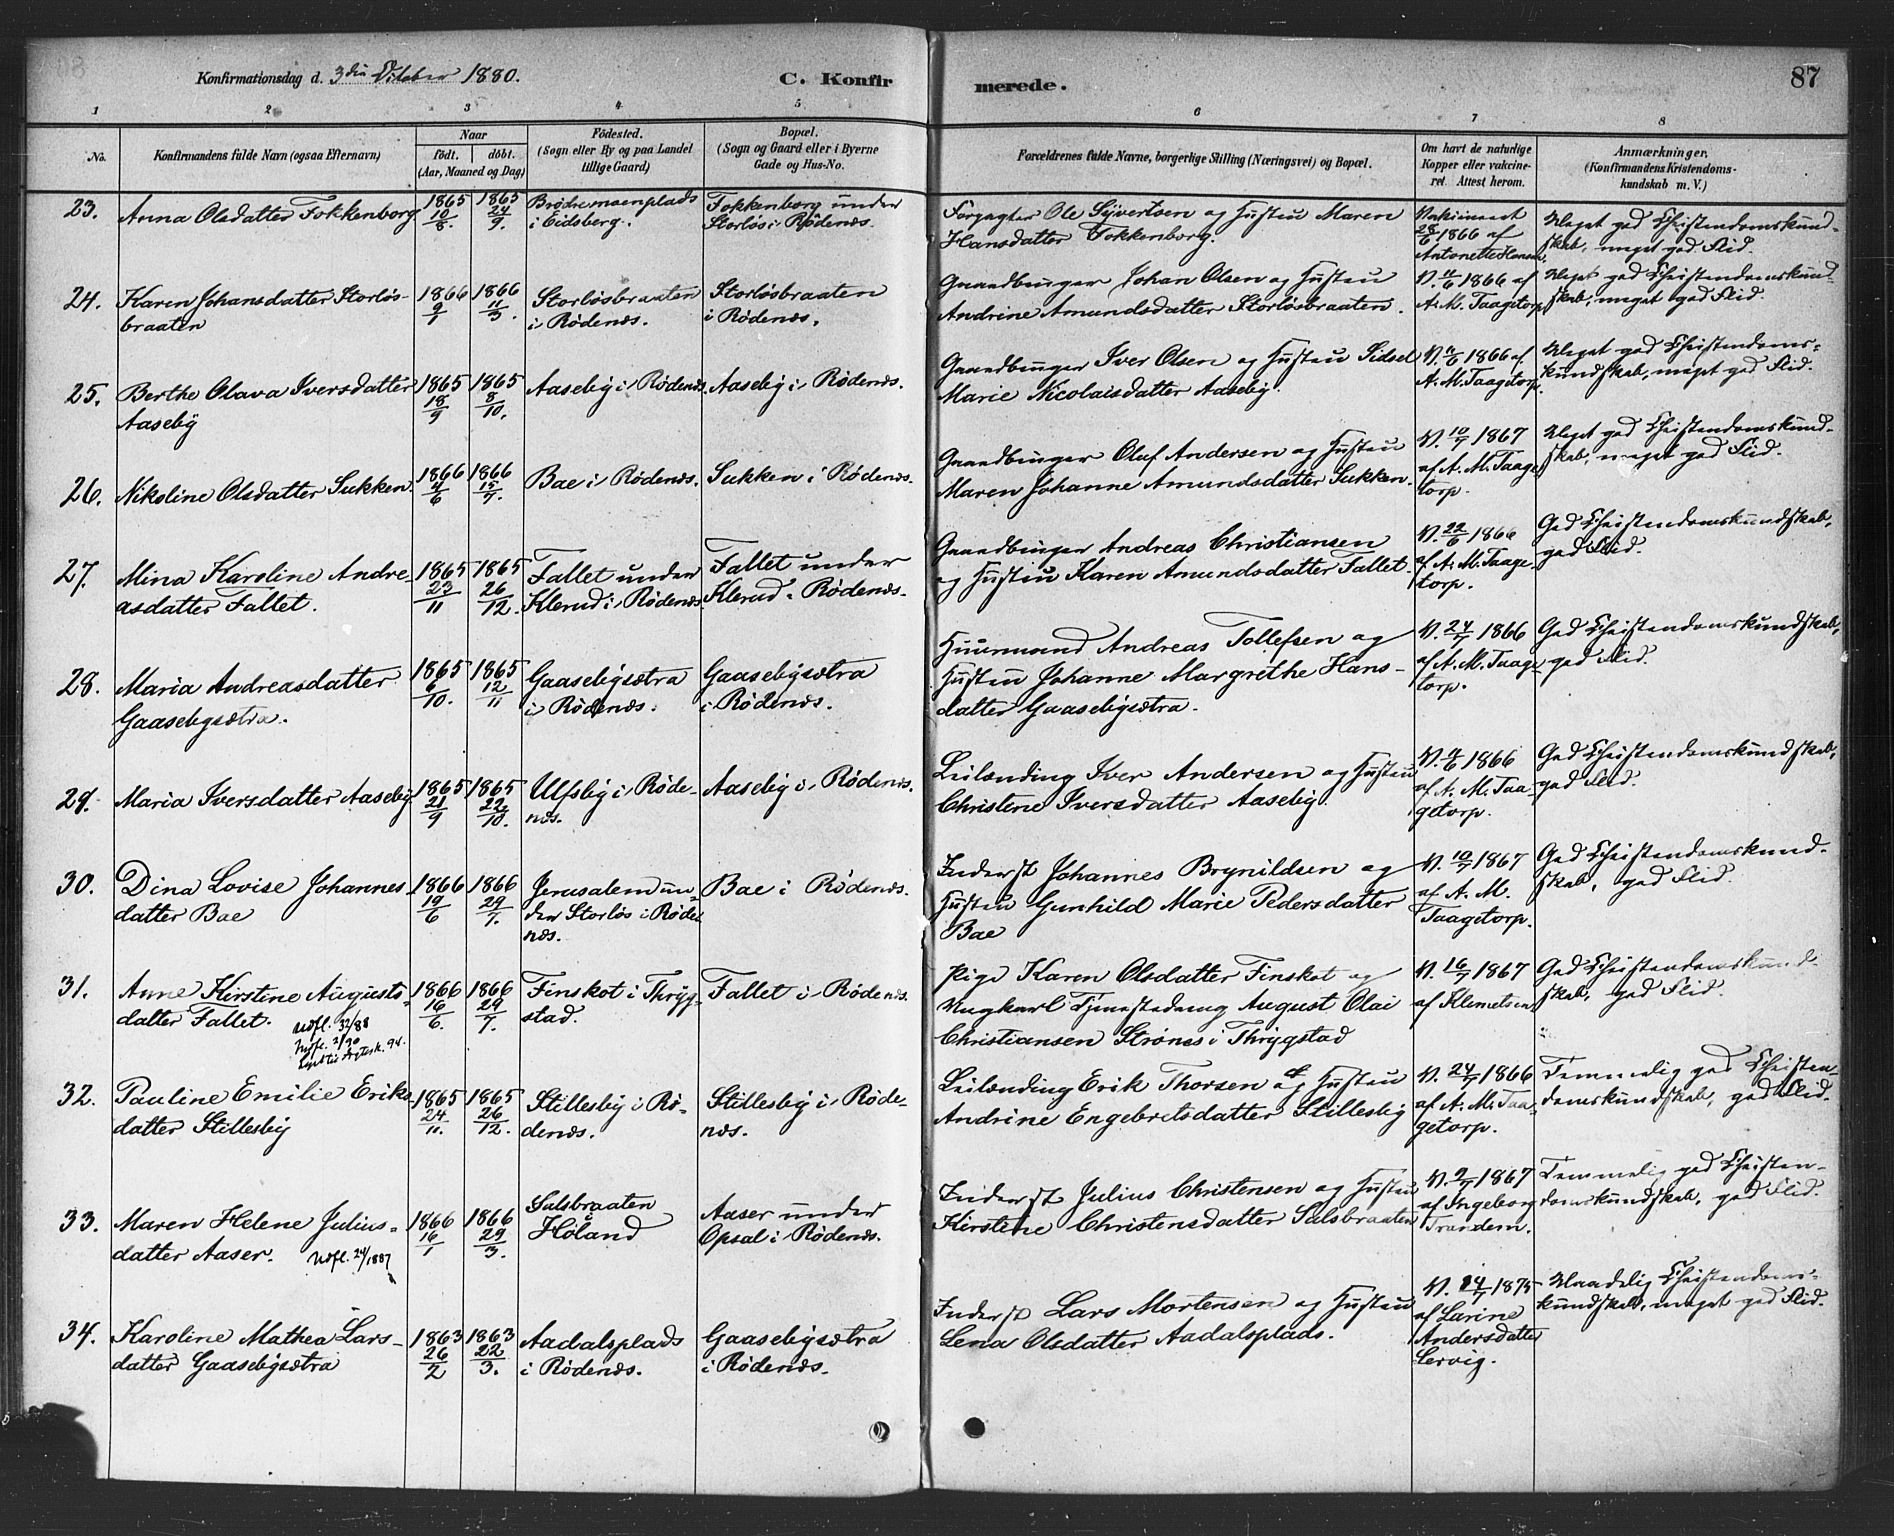 Konfirmationsdag d. 3die October 1880.
C. Konfirmerede.
87
1 2 3 4 5 6 7 8
No.
Konfirmandens fulde Navn (ogsaa Efternavn)
Naar
født. døbt.
(Aar, Maaned og Dag)
Fødested.
(Sogn eller By og paa Landet
tillige Gaard)
Bopæl.
(Sogn og Gaard eller i Byerne
Gade og Hus-No.
Forældrenes fulde Navne, borgerlige Stilling (Næringsvei) og Bopæl.
Om havt de naturlige
Kopper eller vakcine-
ret. Attest herom.
Anmærkninger.
(Konfirmandens Kristendoms-
kundskab m. V.)
23.
Anna Olsdatter Fokkenborg
1865 10/8.
1865 24/9.
Brødremoenplads
i Eidsberg.
Fokkenborg under
Storløs i Rødenæs.
Forpagter Ole Syvertsen og Hustru Maren
Hansdatter Fokkenborg.
Vakcineret
28/6 1866 af
Antonette Hansen
Meget god Christendomskund-
skab, meget god Flid.
24.
Karen Johansdatter Storløs-
braaten
1866 9/1
1866 11/3.
Storløsbraaten
i Rødenæs.
Storløsbraaten
i Rødenæs.
Gaardbruger Johan Olsen og Hustru
Andrine Amundsdatter Storløsbraaten.
V. 11/6 1866 af
A. M. Taagetorp
Meget god Christendomskund-
skab, meget god Flid.
25.
Berthe Olava Iversdatter
Aaseby
1865 18/9
1865 8/10.
Aaseby i Rødenæs.
Aaseby i Rødenæs.
Gaardbruger Iver Olsen og Hustru Sidsel
Marie Nicolaisdatter Aaseby.
V. 11/6 1866 af
A. M. Taagetorp.
Meget god Christendoms-
kundskab, meget god Flid.
26.
Nikoline Olsdatter Sukken.
1866 4/6
1866 15/7.
Bae i Rødenæs.
Sukken i Rødenæs.
Gaardbruger Oluf Andersen og Hustru
Maren Johanne Amundsdatter Sukken.
V. 10/7 1867
af A. M. Taage-
torp.
Meget god Christendomskund-
skab, meget god Flid.
27.
Mina Karoline Andre-
asdatter Fallet.
1865 23/11
1865 26/12.
Fallet under
Klerud i Rødenæs
Fallet under
Klerud i Rødenæs.
Gaardbruger Andreas Christiansen
og Hustru Karen Amundsdatter Fallet.
V. 22/6 1866
af A. M. Taage-
torp.
God Christendomskundskab,
god Flid.
28.
Maria Andreasdatter
Gaasebysætra.
1865 6/10.
1865 12/11
Gaasebysætra
i Rødenæs.
Gaasebysætra
i Rødenæs.
Huusmand Andreas Tollefsen og
Hustru Johanne Margrethe Hans-
datter Gaasebysætra.
V. 24/7 1866
af A. M. Taage-
torp.
God Christendomskundskab,
god Flid.
29.
Maria Iversdatter Aaseby.
1865 21/9
1865 22/10.
Ulfsby i Røde-
næs.
Aaseby i Rødenæs.
Leilænding Iver Andersen og Hustru
Christene Iversdatter Aaseby.
V. 11/6 1866
af A. M. Taa-
getorp.
God Christendomskundskab,
god Flid.
30.
Dina Lovise Johannes-
datter Bae
1866 19/6
1866 29/7.
Jerusalem un-
der Storløs i Røde-
næs.
Bae i Rødenæs.
Inderst Johannes Brynildsen og
Hustru Gunhild Marie Pedersdatter
Bae
V. 10/7 1867
af A. M.
Taagetorp.
God Christendomskund-
skab, god Flid.
31.
Anne Kirstine Augusts-
datter Fallet.
Udfl. 32/88
Udfl. 2/90
1866 16/6.
1866 29/7.
Finskot i Thryg-
stad.
Fallet i Rødenæs.
Pige Karen Olsdatter Finskot og
Ungkarl Tjenestedreng August Olai
Christiansen Strønes i Thrygstad
V. 16/7 1867
af Klemetsen
God Christendomskund-
skab, god Flid.
32.
Pauline Emilie Eriks-
datter Stillesby
1865 24/11.
1865 26/12.
Stillesby i Rø-
denæs.
Stillesby i Røde-
næs.
Leilænding Erik Thorsen og Hustru
Andrine Engebretsdatter Stillesby
V. 24/7 1866
af A. M. Taa-
getorp.
Temmelig god Christen-
domskundskab, god Flid.
33.
Maren Helene Julius-
datter Aaser.
Udfl. 24/1887
1866 16/1
1866 29/3.
Salsbraaten
i Høland
Aaser under
Opsal i Rødenæs.
Inderst Julius Christensen og Hustru
Kirstine Christensdatter Salsbraaten
V. 9/7 1867
af Ingeborg
Trandem.
Temmelig god Christen-
domskundskab, god Flid.
34.
Karoline Mathea Lars-
datter Gaasebysætra
1863 26/2
1863 22/3.
Aadalsplads
i Rødenæs.
Gaasebysætra
i Rødenæs.
Inderst Lars Mortensen og Hustru
Lena Olsdatter Aadalsplads.
V. 14/7 1875
af Larine
Andersdatter
Lervig.
Maadelig Christendoms-
kundskab, meget god Flid.